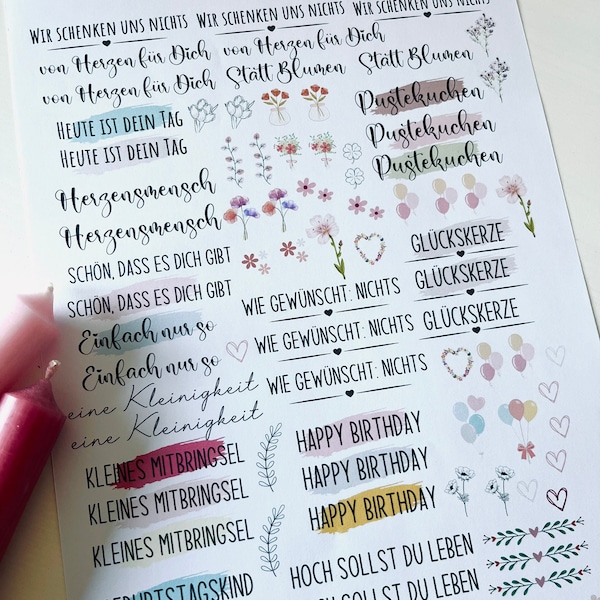 WIR SCHENKEN UNS NICHTS
WIR SCHENKEN UNS NICHTS
WIR SCHENKEN UNS NICHTS
von Herzen für Dich
von Herzen für Dich
von Herzen für Dich
Statt Blumen
Statt Blumen
HEUTE IST DEIN TAG
HEUTE IST DEIN TAG
Pustekuchen
Pustekuchen
Pustekuchen
Herzensmensch
Herzensmensch
SCHÖN, DASS ES DICH GIBT
SCHÖN, DASS ES DICH GIBT
GLÜCKSKERZE
GLÜCKSKERZE
GLÜCKSKERZE
Einfach nur so
Einfach nur so
WIE GEWÜNSCHT: NICHTS
WIE GEWÜNSCHT: NICHTS
WIE GEWÜNSCHT: NICHTS
eine Kleinigkeit
eine Kleinigkeit
KLEINES MITBRINGSEL
KLEINES MITBRINGSEL
KLEINES MITBRINGSEL
HAPPY BIRTHDAY
HAPPY BIRTHDAY
HAPPY BIRTHDAY
GEBURTSTAGSKIND
HOCH SOLLST DU LEBEN
HOCH SOLLST DU LEBEN